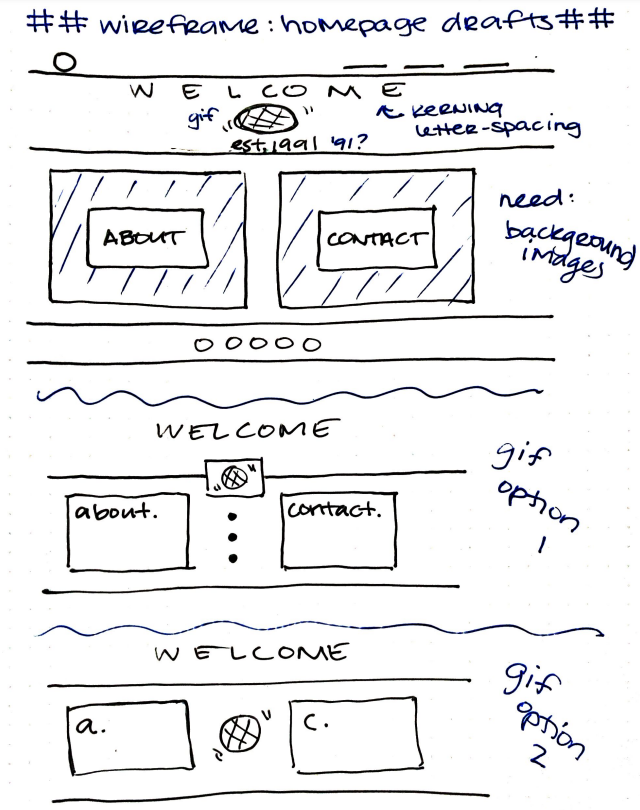 ## wireframe: homepage drafts ##
WELCOME
gif
KERNING
letter-spacing
est. 1991 '91?
ABOUT
CONTACT
need:
background
images
WELCOME
gif
option
1
about.
contact.
WELCOME
gif
option
2
a.
c.